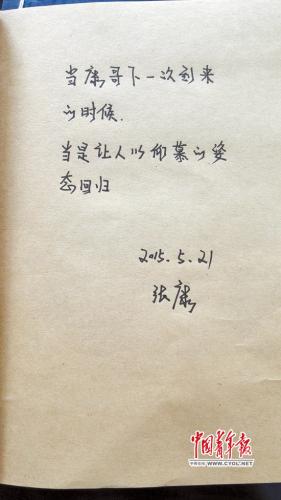 当康哥下一次到来
的时候.
当是让人以仰慕的姿
态回归
2015.5.21
张康
中国青年报
中青在线 WWW.CYOL.NET